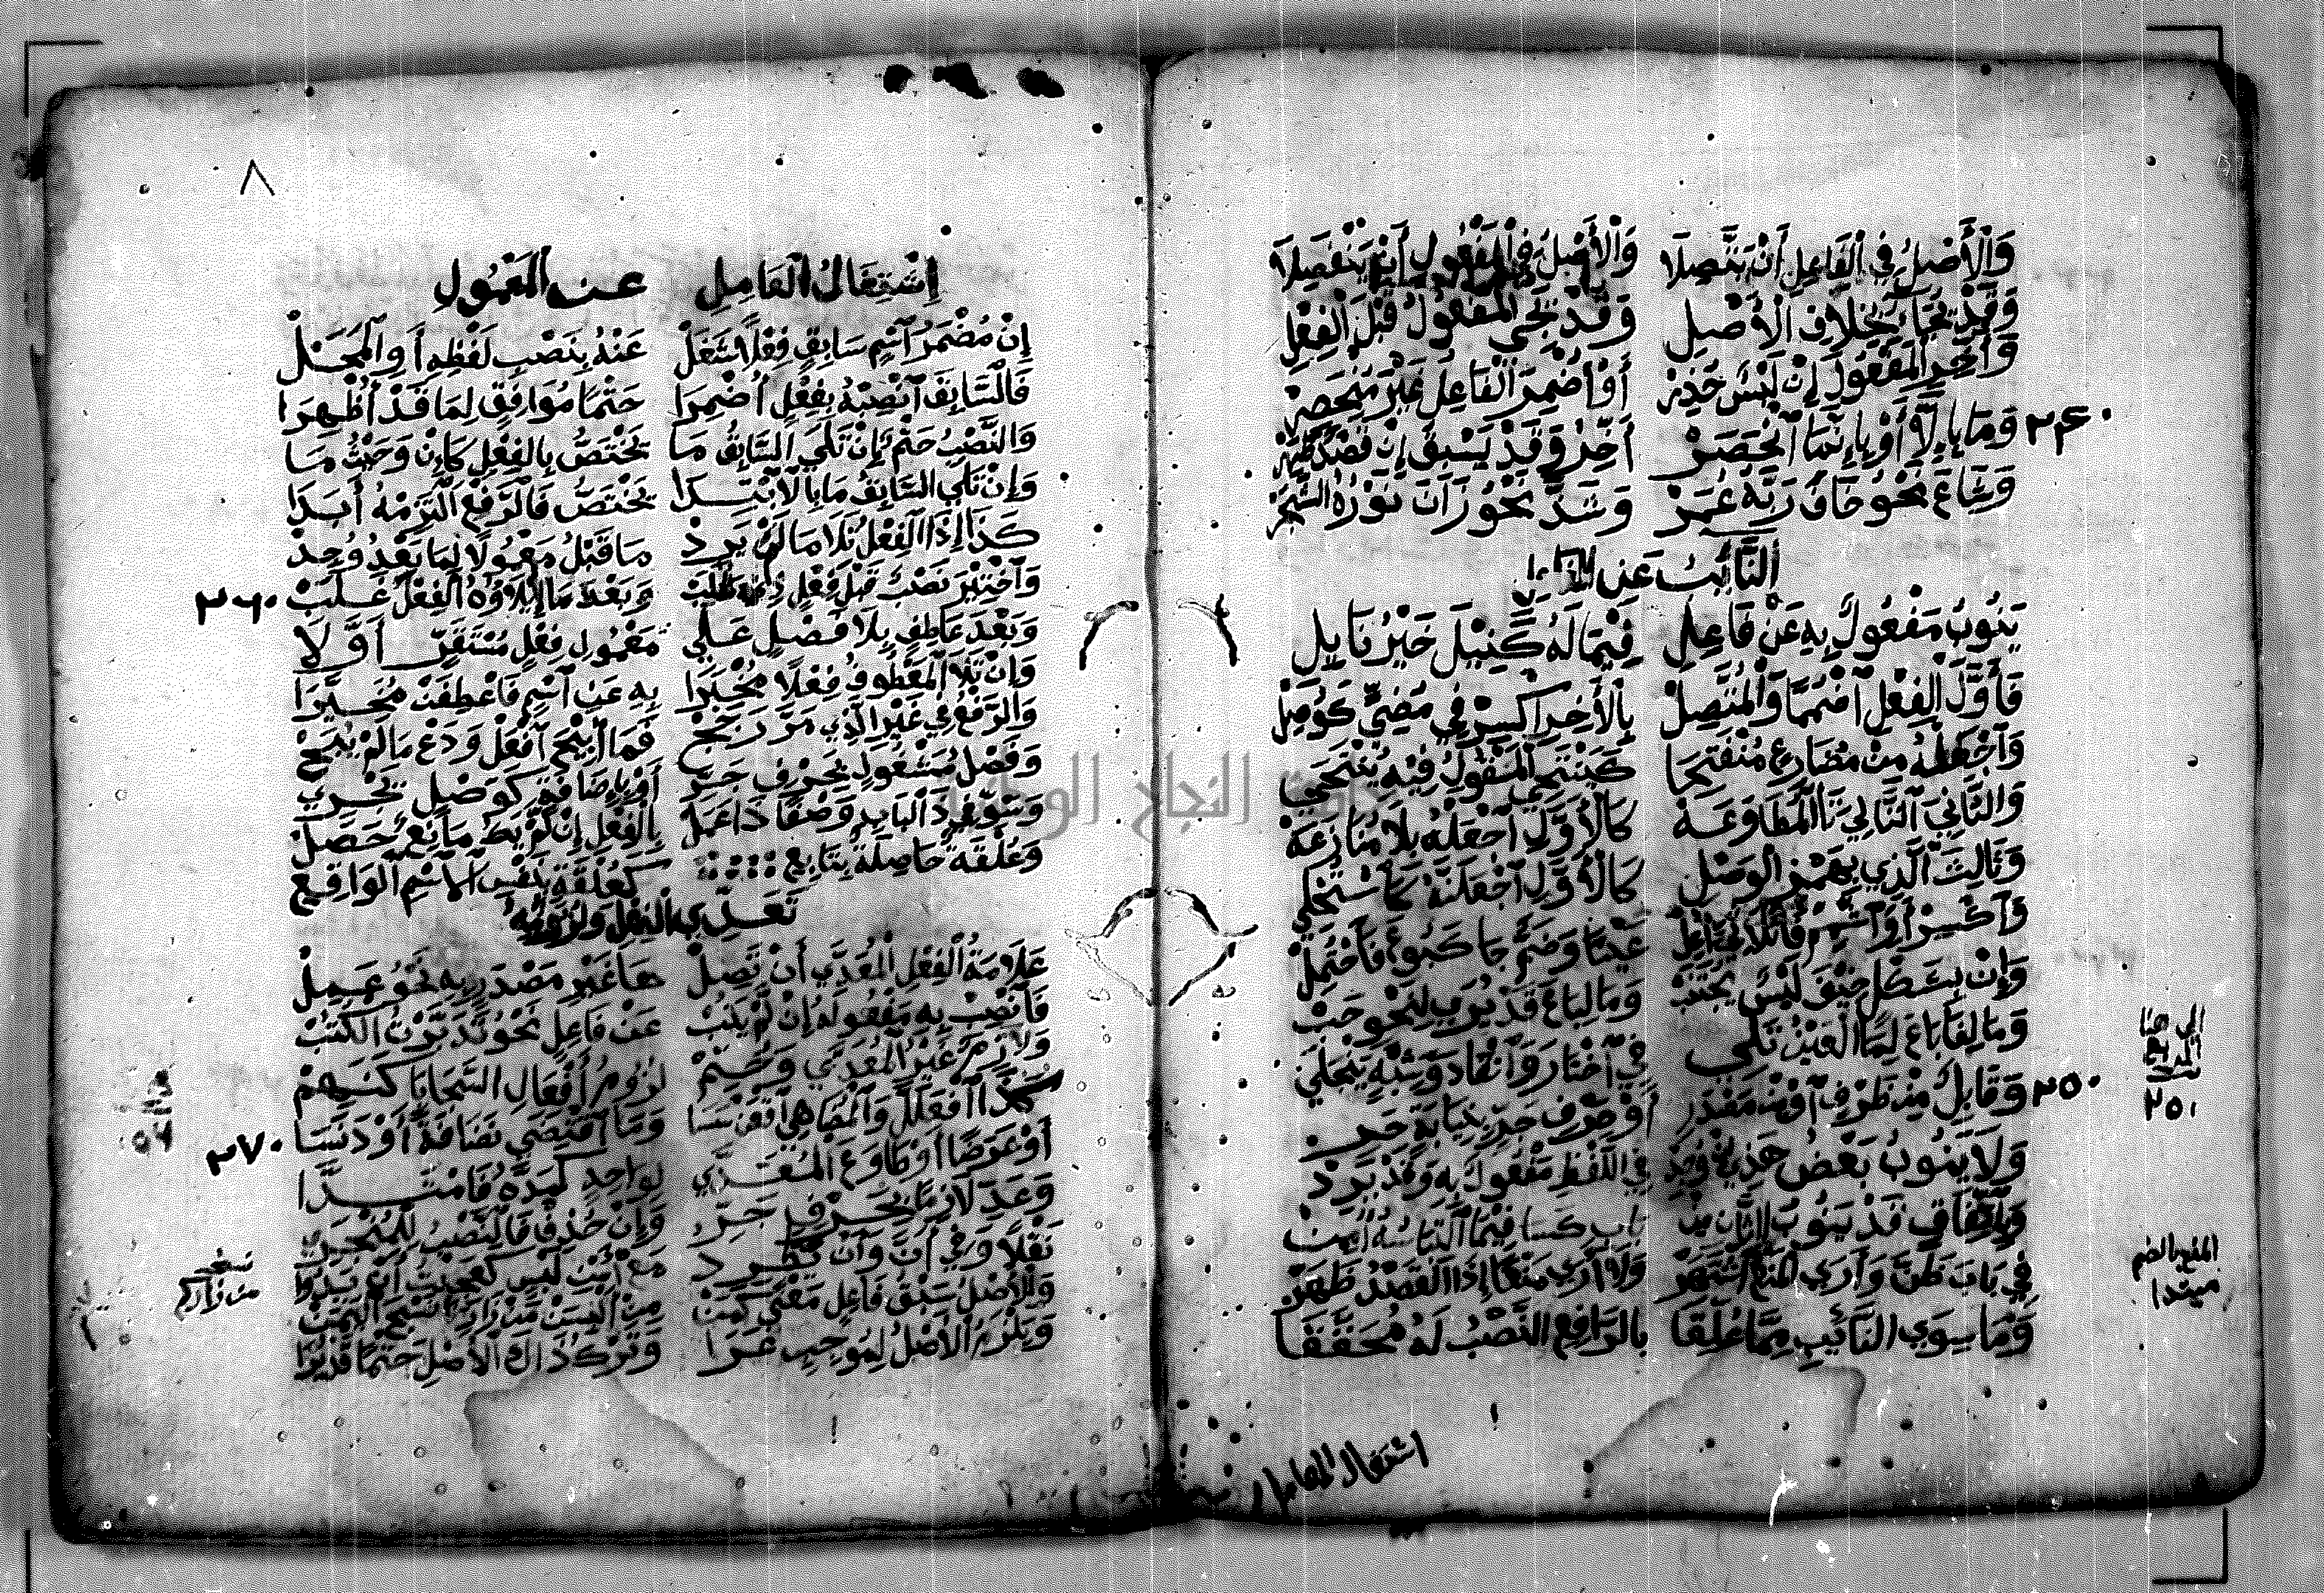 وَالْأَصْلُ فِي الْفَاعِلِ أَنْ يَتَّصِلَا وَالْأَصْلُ فِي الْمَفْعُولِ أَنْ يَنْفَصِلَا
وَقَدْ يُجَاءُ بِخِلَافِ الْأَصْلِ وَقَدْ يَجِي الْمَفْعُولُ قَبْلَ الْفِعْلِ
وَأَخِّرِ الْمَفْعُولَ إِنْ لَبْسٌ حُذِرْ أَوْ أُضْمِرَ الْفَاعِلُ غَيْرَ مُنْحَصِرْ
٢٤٠ وَمَا بِإِلَّا أَوْ بِإِنَّمَا انْحَصَرْ أَخِّرْ وَقَدْ يَسْبِقُ إِنْ قَصْدٌ ظَهَرْ
وَشَاعَ نَحْوُ خَافَ رَبَّهُ عُمَرْ وَشَذَّ نَحْوُ زَانَ نَوْرُهُ الشَّجَرْ
النَّائِبُ عَنِ
يَنُوبُ مَفْعُولٌ بِهِ عَنْ فَاعِلِ فِيمَا لَهُ كَنِيلَ خَيْرُ نَايِلِ
فَأَوَّلَ الْفِعْلِ اضْمُمًا وَالْمُتَّصِلْ بِالْآخِرِ اكْسِرْ فِي مُضِيٍّ كَوُصِلْ
وَاجْعَلْهُ مِنْ مُضَارِعٍ مُنْفَتِحَا كَيَنْتَحِي الْمَقُولُ فِيهِ يُنْتَحَى
وَالثَّانِيَ التَّالِيَ تَا الْمُطَاوَعَهْ كَالْأَوَّلِ اجْعَلْهُ بِلَا مُنَازَعَهْ
وَثَالِثَ الَّذِي بِهَمْزِ الْوَصْلِ كَالْأَوَّلِ اجْعَلَنَّهُ كَاسْتُحْلِي
وَاكْسِرْ أَوْ اشْمِمْ فَا ثُلَاثِيٍّ أُعِلْ عَيْنًا وَضَمٌّ جَا كَبُوعَ فَاحْتُمِلْ
وَإِنْ بِشَكْلٍ خِيفَ لَبْسٌ يُجْتَنَبْ وَمَا لِبَاعَ قَدْ يُرَى لِنَحْوِ حَبْ
وَمَا لِفَا بَاعَ لِمَا الْعَيْنُ تَلِي فِي اخْتَارَ وَانْقَادَ وَشِبْهٍ يَنْجَلِي
٢٥٠ وَقَابِلٌ مِنْ ظَرْفٍ أَوْ مِنْ مَصْدَرِ أَوْ حَرْفِ جَرٍّ بِنِيَابَةٍ حَرِي
وَلَا يَنُوبُ بَعْضُ هَذِي إِنْ وُجِدْ فِي اللَّفْظِ مَفْعُولٌ بِهِ وَقَدْ يَرِدْ
وَبِاتِّفَاقٍ قَدْ يَنُوبُ الثَّانِ مِنْ بَابِ كَسَا فِيمَا الْتِبَاسُهُ أُمِنْ
فِي بَابِ ظَنَّ وَأَرَى الْمَنْعُ اشْتَهَرْ وَلَا أَرَى مَنْعًا إِذَا الْقَصْدُ ظَهَرْ
وَمَا سِوَى النَّائِبِ مِمَّا عُلِّقَا بِالرَّافِعِ النَّصْبُ لَهُ مُحَقَّقَا
الى هنا
٢٥٠
اشتغال العامل
٨
إِشْتِغَالُ الْعَامِلِ عَنِ الْمَعْمُولِ
إِنْ مُضْمَرُ اسْمٍ سَابِقٍ فِعْلًا شَغَلْ عَنْهُ بِنَصْبِ لَفْظِهِ أَوِ الْمَحَلْ
فَالسَّابِقَ انْصِبْهُ بِفِعْلٍ أُضْمِرَا حَتْمًا مُوَافِقٍ لِمَا قَدْ أُظْهِرَا
وَالنَّصْبُ حَتْمٌ إِنْ تَلَى السَّابِقُ مَا يَخْتَصُّ بِالْفِعْلِ كَإِنْ وَحَيْثُمَا
وَإِنْ تَلَى السَّابِقُ مَا بِالْابْتِدَا يَخْتَصُّ فَالرَّفْعَ الْتَزِمْهُ أَبَدَا
كَذَا إِذَا الْفِعْلُ تَلَا مَا لَمْ يَرِدْ مَا قَبْلُ مَعْمُولًا لِمَا بَعْدُ وُجِدْ
وَاخْتِيرَ نَصْبٌ قَبْلَ فِعْلٍ ذِي طَلَبْ وَبَعْدَ مَا إِيلَاؤُهُ الْفِعْلَ غَلَبْ ٢٦٠
وَبَعْدَ عَاطِفٍ بِلَا فَصْلٍ عَلَى مَعْمُولِ فِعْلٍ مُسْتَقِرٍّ أَوَّلَا
وَإِنْ تَلَا الْمَعْطُوفُ فِعْلًا مُخْبَرَا بِهِ عَنِ اسْمٍ فَاعْطِفَنْ مُخَيَّرَا
وَالرَّفْعُ فِي غَيْرِ الَّذِي مَرَّ رَجَحْ فَمَا أُبِيحَ افْعَلْ وَدَعْ مَا لَمْ يُبَحْ
وَفَصْلُ مَشْغُولٍ بِحَرْفِ جَرِّ أَوْ بِإِضَافَةٍ كَوَصْلٍ يَجْرِي
وَسَوِّ فِي ذَا الْبَابِ وَصْفًا ذَا عَمَلْ بِالْفِعْلِ إِنْ لَمْ يَكُ مَانِعٌ حَصَلْ
وَعُلْقَةٌ حَاصِلَةٌ بِتَابِعِ كَعُلْقَةٍ بِنَفْسِ الْاسْمِ الْوَاقِعِ
تَعَدِّي الْفِعْلِ وَلُزُومُهُ
عَلَامَةُ الْفِعْلِ الْمُعَدَّى أَنْ تَصِلْ هَا غَيْرِ مَصْدَرٍ بِهِ نَحْوُ عَمِلْ
فَانْصِبْ بِهِ مَفْعُولَهُ إِنْ لَمْ يَنُبْ عَنْ فَاعِلٍ نَحْوُ تَدَبَّرْتُ الْكُتُبْ
وَلَازِمٌ غَيْرُ الْمُعَدَّى وَحُتِمْ لُزُومُ أَفْعَالِ السَّجَايَا كَنَهِمْ
كَذَا افْعَلَلَّ وَالْمُضَاهِي اقْعَنْسَسَا وَمَا اقْتَضَى نَظَافَةً أَوْ دَنَسَا ٢٧٠
أَوْ عَرَضًا أَوْ طَاوَعَ الْمُعَدَّى لِوَاحِدٍ كَمَدَّهُ فَامْتَدَّا
وَعَدِّ لَازِمًا بِحَرْفِ جَرِّ وَإِنْ حُذِفْ فَالنَّصْبُ لِلْمُنْجَرِّ
نَقْلًا وَفِي أَنَّ وَأَنْ يَطَّرِدُ مَعْ أَمْنِ لَبْسٍ كَعَجِبْتُ أَنْ يَدُوا
وَالْأَصْلُ سَبْقُ فَاعِلٍ مَعْنًى كَمَنْ مِنْ أَلْبِسَنْ مَنْ زَارَكُمْ نَسْجَ الْيَمَنْ
وَيَلْزَمُ الْأَصْلُ لِمُوجِبٍ عَرَا وَتَرْكُ ذَاكَ الْأَصْلِ حَتْمًا قَدْ يُرَى
نسخة
من زاركم
جامعة النجاح الوطنية